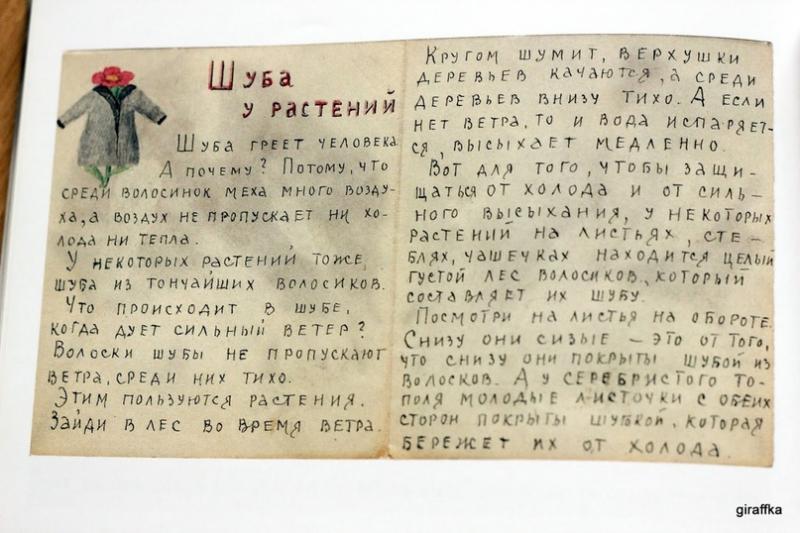 Шуба
у растений
Шуба греет человека.
А почему? Потому, что
среди волосинок меха много возду-
ха, а воздух не пропускает ни хо-
лода ни тепла.
У некоторых растений тоже
шуба из тончайших волосиков.
Что происходит в шубе,
когда дует сильный ветер?
Волоски шубы не пропускают
ветра, среди них тихо.
Этим пользуются растения.
Зайди в лес во время ветра.
Кругом шумит, верхушки
деревьев качаются, а среди
деревьев внизу тихо. А если
нет ветра, то и вода испаряет-
ся, высыхает медленно.
Вот для того, чтобы защи-
щаться от холода и от силь-
ного высыхания, у некоторых
растений на листьях, сте-
блях, чашечках находится целый
густой лес волосиков, который
составляет их шубу.
Посмотри на листья на обороте.
Снизу они сизые — это от того,
что снизу они покрыты шубой из
волосков. А у серебристого то-
поля молодые листочки с обеих
сторон покрыты шубкой, которая
бережет их от холода.
giraffka